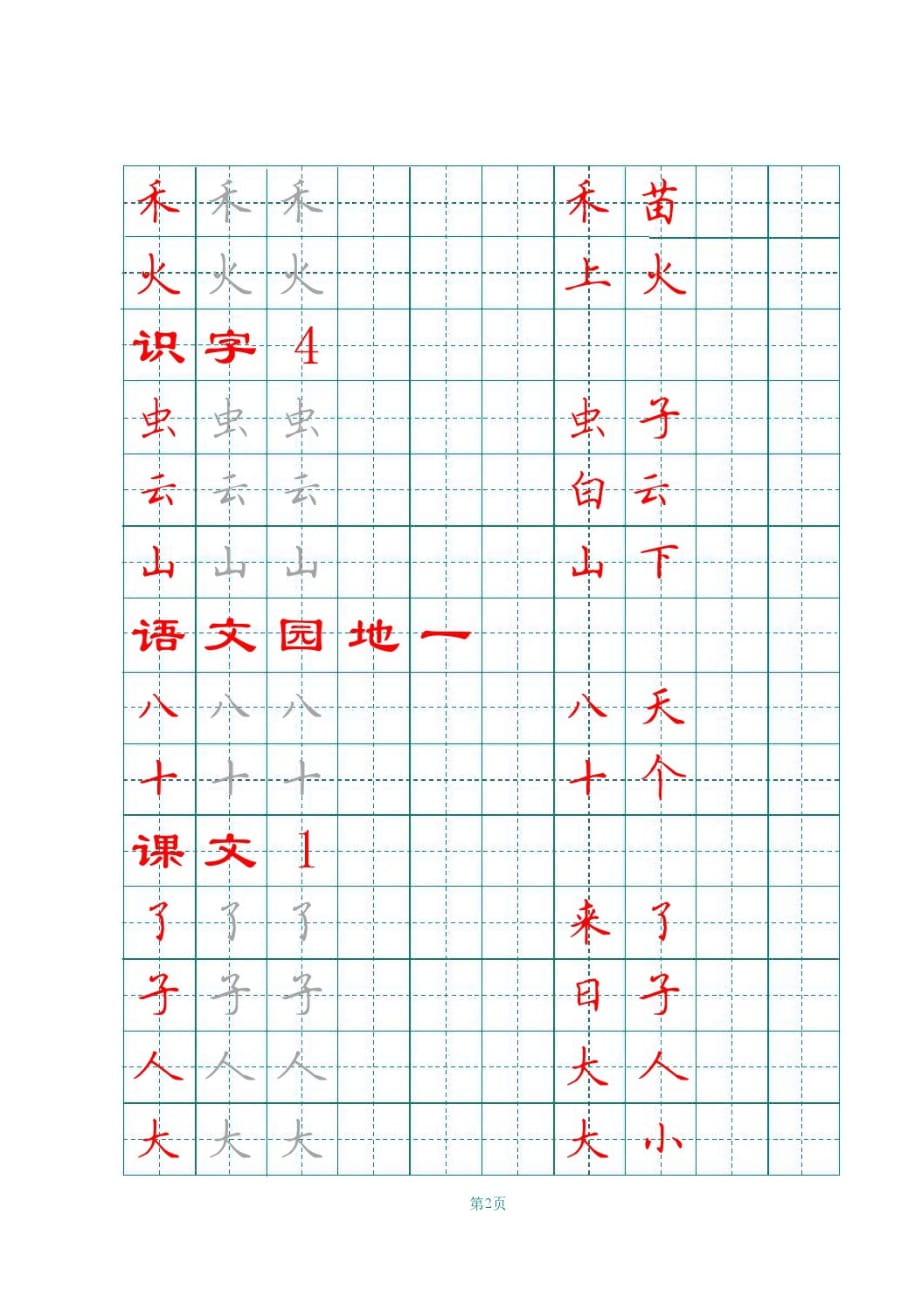 禾 禾 禾 禾 苗
火 火 火 上 火
识 字 4
虫 虫 虫 虫 子
云 云 云 白 云
山 山 山 山 下
语 文 园 地 一
八 八 八 八 天
十 十 十 十 个
课 文 1
了 了 了 来 了
子 子 子 日 子
人 人 人 大 人
大 大 大 大 小
第2页